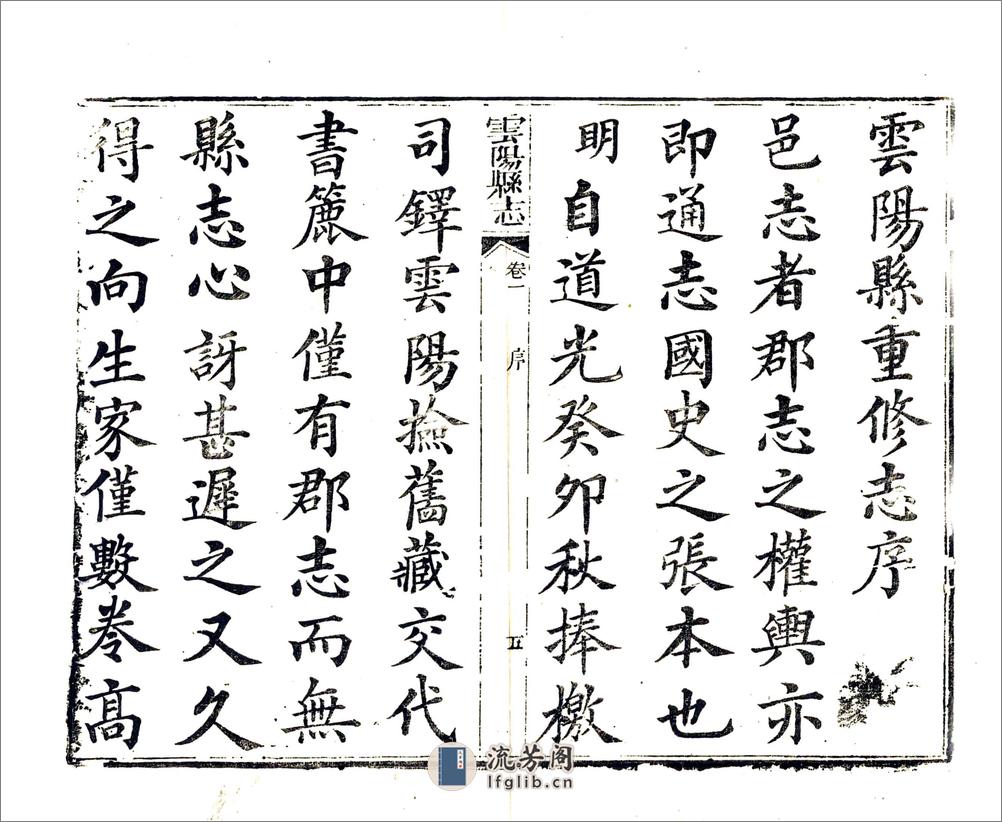 雲陽縣重修志序
邑志者郡志之權輿亦
即通志國史之張本也
明自道光癸卯秋捧檄
雲陽縣志 卷一 序 五
司鐸雲陽撿舊藏交代
書簏中僅有郡志而無
縣志心訝甚遲之又久
得之向生家僅數卷高
流芳阁
lfglib.cn